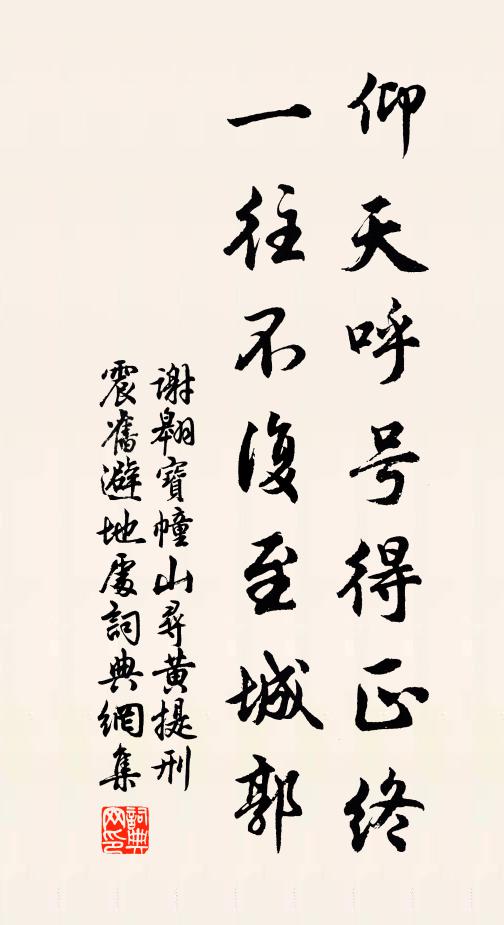 仰天呼号得正终
一往不復至城郭
谢翱寶幢山尋黄提刑
震舊避地處詞典網集
詞典网印